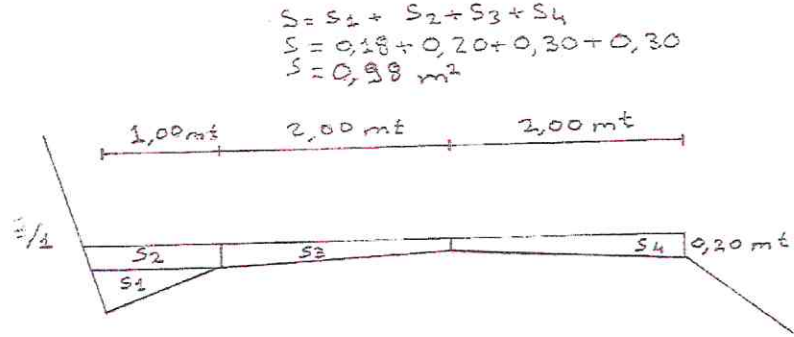 S = S1 + S2 + S3 + S4
S = 0,18 + 0,20 + 0,30 + 0,30
S = 0,98 m²
1,00 mt 2,00 mt 2,00 mt
S2 S3 S4 0,20 mt
S1